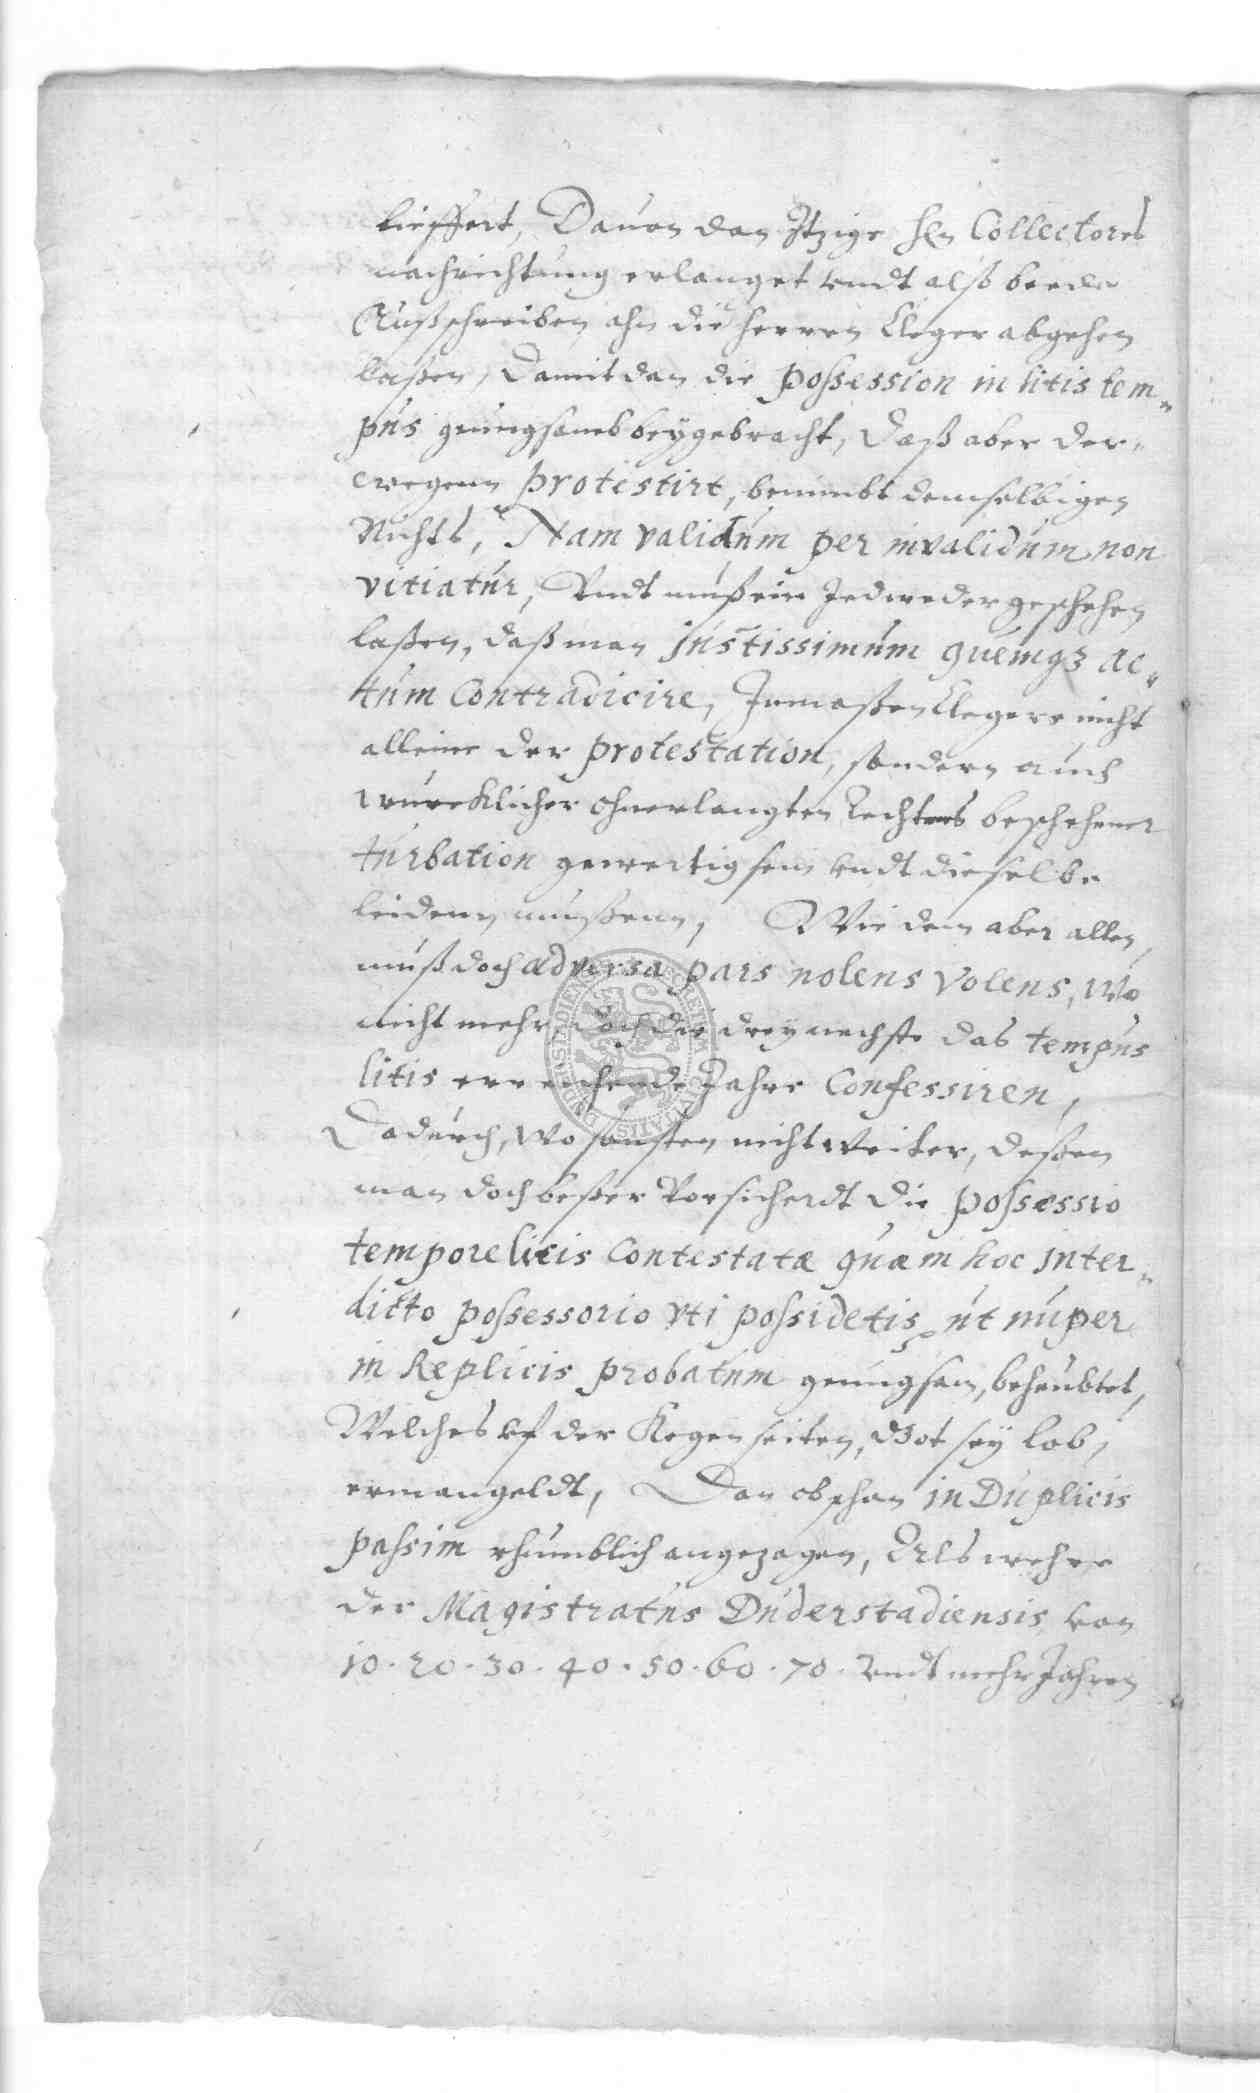 lieffert, Dauon dan Itzige Hn Collectores
nachrichtung erlanget vndt alß beede
Außschreiben ahn die herren Cleger abgehen
laßen, Damit dan die possession in litis tem-
pus gnungsamb beygebracht, Daß aber der-
wegenn protestirt, benimbt demselbigen
Nichts, Nam validum per invalidum non
vitiatur, Vndt muß ein Jedweder geschehen
laßen, daß man justissimum quemq3 ac-
tum Contradicire, Inmaßen Clegere nicht
alleine der protestation, sondern auch
würcklicher ohnerlangten Rechtens beschehener
turbation gewertig sein vndt dieselbe
leidenn mußenn, Wie dem aber allen,
muß doch adversa pars nolens volens, wo
nicht mehr, doch die drey nechste das tempus
litis erreichende Jahre Confessiren,
Dadurch, wo sonsten nicht weiter, deßen
man doch beßer Vorsicherdt die possessio
tempore litis Contestatæ quam hoc inter-
dicto possessorio vti possidetis, ut nuper
in Replicis probatum gnungsam, behaubtet,
Welches vf der Kegenseiten, Got sey lob,
ermangeldt, Dan obschon in Duplicis
passim rhumblich angezogen, Als wehre
der Magistratus Duderstadiensis von
10. 20. 30. 40. 50. 60. 70. vndt mehr Jahren